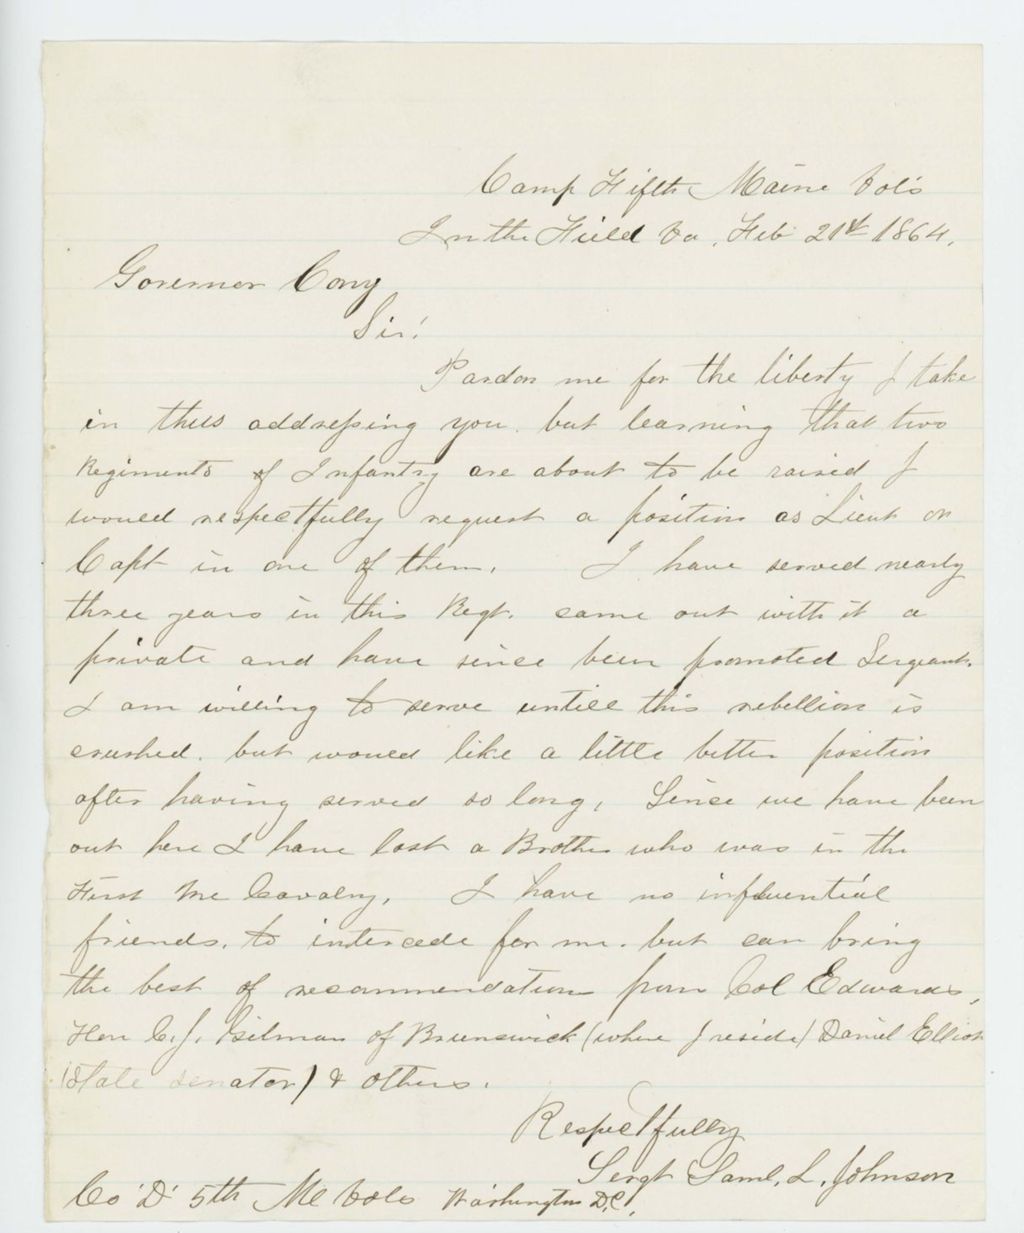 Camp Fifth Maine Vols
In the Field Va, Feb 21st 1864,
Governor Cony
Sir!
Pardon me for the liberty I take
in thus addressing you. but learning that two
Regiments of Infantry are about to be raised I
would respectfully request a position as Lieut or
Capt in one of them. I have served nearly
three years in this Regt. came out with it a
private and have since been promoted Sergeant.
I am willing to serve untill this rebellion is
crushed. but would like a little better position
after having served so long, Since we have been
out here I have lost a Brother who was in the
First Me Cavalry, I have no influential
friends. to intercede for me. but can bring
the best of recommendations from Col Edwards,
Hon C. J. Gilman of Brunswick (where I reside) Daniel Elliot
(State senator) & others.
Respectfully
Sergt Saml. L. Johnson
Co 'D' 5th Me Vols Washington D.C.